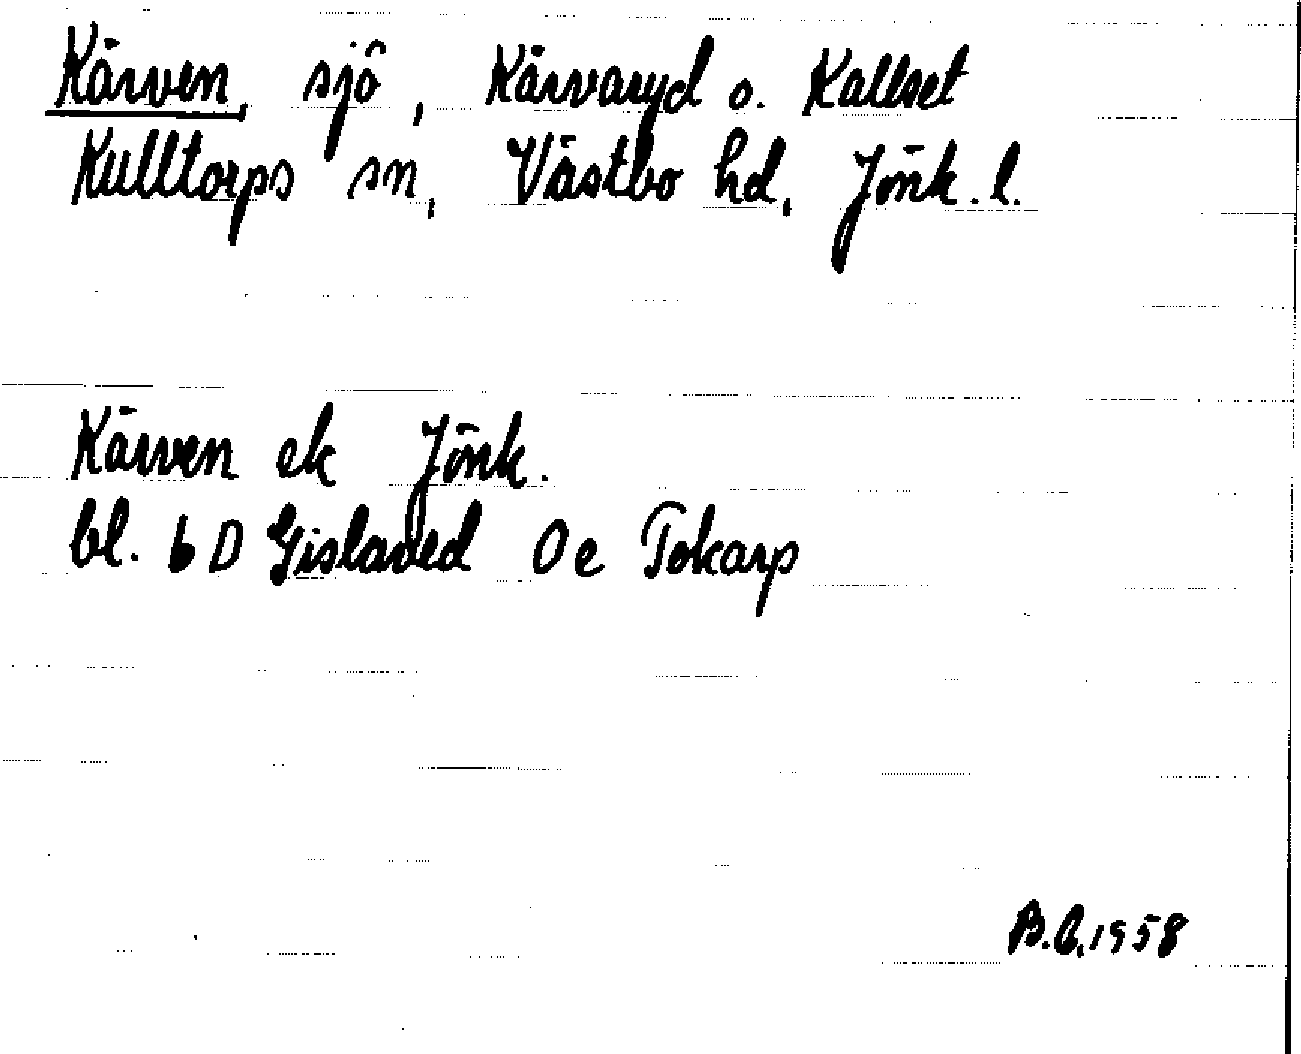 Kärven, sjö, Kärvaryd o. Kallset
Kulltorps sn, Västbo hd, Jönk. l.
Kärven ek Jönk.
bl. 6 D Gislaved 0 e Tokarp
B.B. 1958